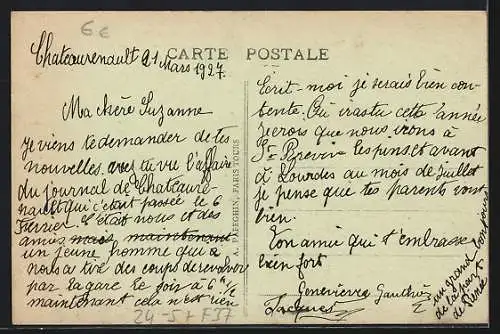 6€
Chateaurenault 21 Mars 1927
CARTE POSTALE
Ma chère Suzanne
Je viens te demander de tes
nouvelles. avez tu vu l'affaire
du journal de Chateaure-
nault qui c'etait passée le 6
Fevrier. C'était nous et des
amies mais maintenant
un jeune homme qui a
nous a tiré des coups de revolver
par la gare la fois à 6h ½
maintenant cela n'est rien
24-5+ F37
A. PAPEGHIN, PARIS TOURS
Ecrit-moi je serais bien con-
tente. Où iras tu cette année
je crois que nous irons à
St Brevin les pins et avant
à Lourdes au mois de juillet
je pense que tes parents vont
bien.
Ton amie qui t'embrasse
bien fort
Genevieve Gauthier
Jacques
un grand
bonjour
de la part
de